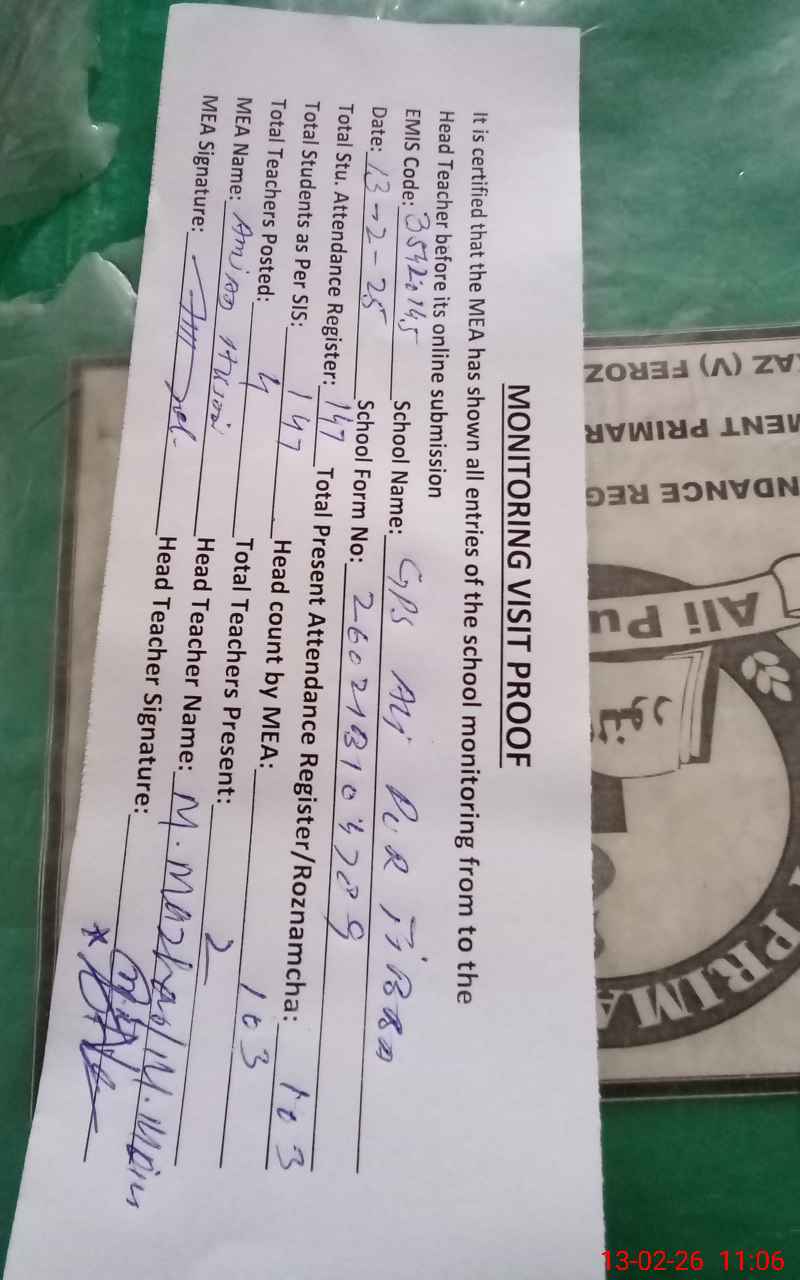 MONITORING VISIT PROOF
It is certified that the MEA has shown all entries of the school monitoring from to the
Head Teacher before its online submission
EMIS Code: 35420145 School Name: GPS Ali PUR TiBBA
Date: 13-2-25 School Form No:
Total Stu. Attendance Register: 147 Total Present Attendance Register/Roznamcha: 103
Total Students as Per SIS: 147 Head count by MEA: 103
Total Teachers Posted: 4 Total Teachers Present: 2
MEA Name: Head Teacher Name: M. Mazhar/M. Moin
MEA Signature: Head Teacher Signature:
AZ (V) FEROZ
MENT PRIMAR
NDANCE REG
Ali Pu
PRIMA
13-02-26 11:06